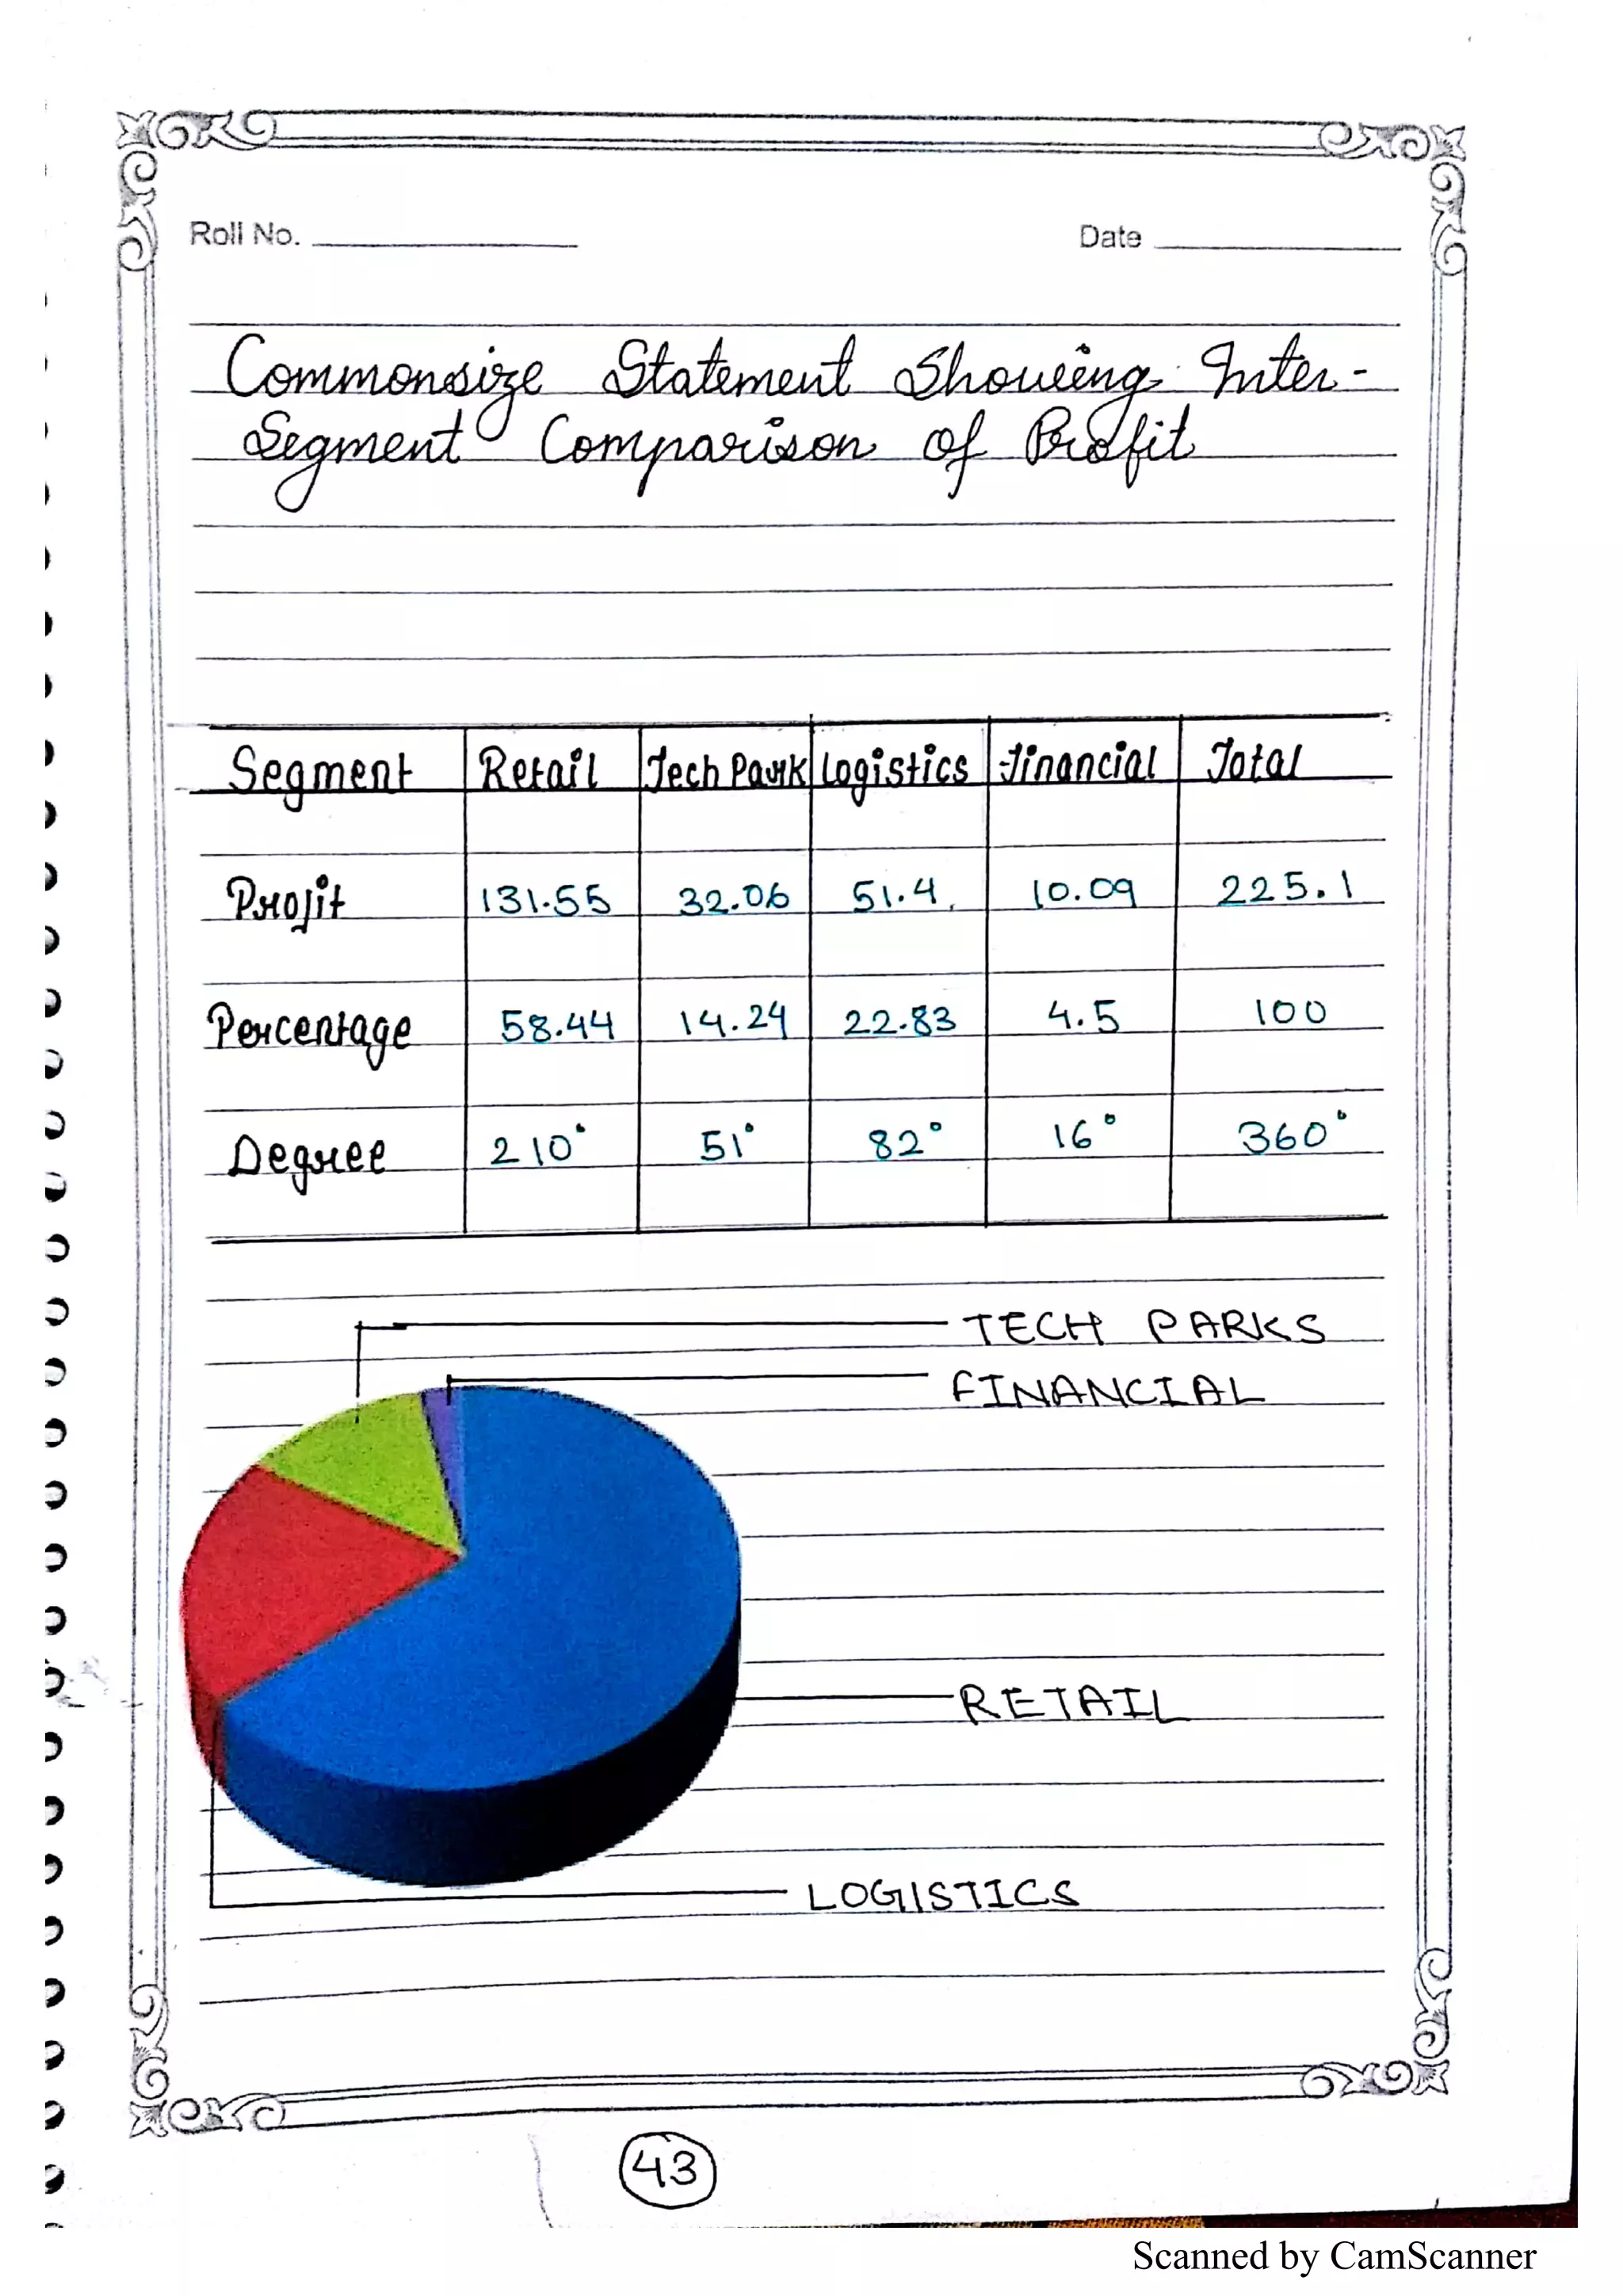 Roll No. Date
Commonsize Statement Showing Inter-
Segment Comparison of Profit
Segment Retail Tech Park Logistics Financial Total
Profit 131.55 32.06 51.4 10.09 225.1
Percentage 58.44 14.24 22.83 4.5 100
Degree 210° 51° 82° 16° 360°
TECH PARKS
FINANCIAL
RETAIL
LOGISTICS
43
Scanned by CamScanner